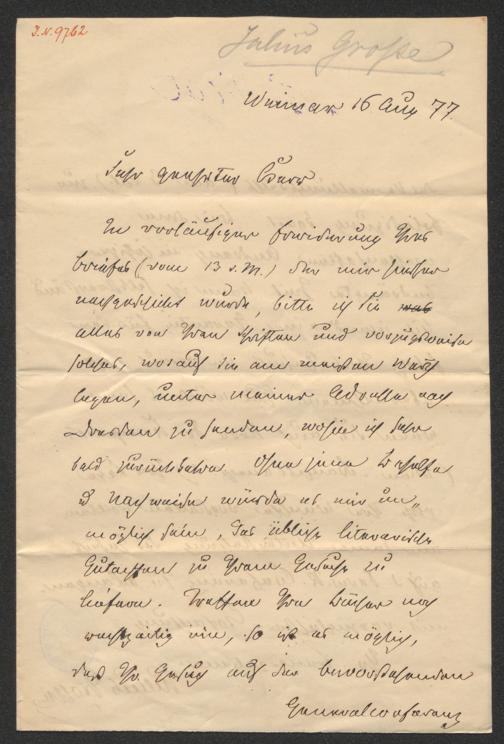 I.N. 9762
Julius Große
Weimar 16 Aug 77.
Sehr geehrter Herr
In vorläufiger Erwiderung Ihres
Briefes (vom 13 d. M.) der mir hierher
nachgeschickt wurde, bitte ich Sie was
alles von Ihren Schriften und vorzugsweise
solches, worauf Sie am meisten Werth
legen, unter meiner Adresse nach
Dresden zu senden, wohin ich sehr
bald zurückkehre. Ohne jene Behelfe
u Nachweise würde es mir un-
möglich sein, das übliche literarische
Gutachten zu Ihrem Gesuch zu
liefern. Treffen Ihre Bücher noch
rechtzeitig ein, so ist es möglich,
daß Ihr Gesuch auf der bevorstehenden
Generalconferenz